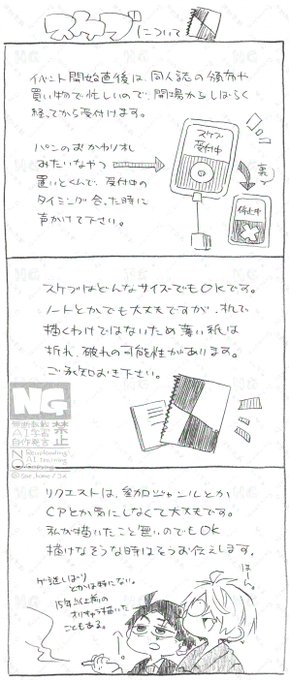 スケブについて
イベント開始直後は、同人誌の頒布や
買い物で忙しいので、開場からしばらく
経ってから受付けます。
パンのおかわりOK
みたいなやつ
置いとくんで、受付中の
タイミング合った時に
声かけて下さい。
スケブ
受付中
裏
停止中
スケブはどんなサイズでもOKです。
ノートとかでも大丈夫ですが、机で
描くわけではないため薄い紙は
折れ、破れの可能性があります。
ご承知おき下さい。
NG
無断転載
AI学習
自作発言
禁止
Reuploading
AI learning
リクエストは、参加ジャンルとか
CPとか気にしなくて大丈夫です。
私が描いたこと無いのでもOK
描けなそうな時はそうお伝えします。
とかは特にない。
15年以上前の
オリキャラ描いた
こともある。